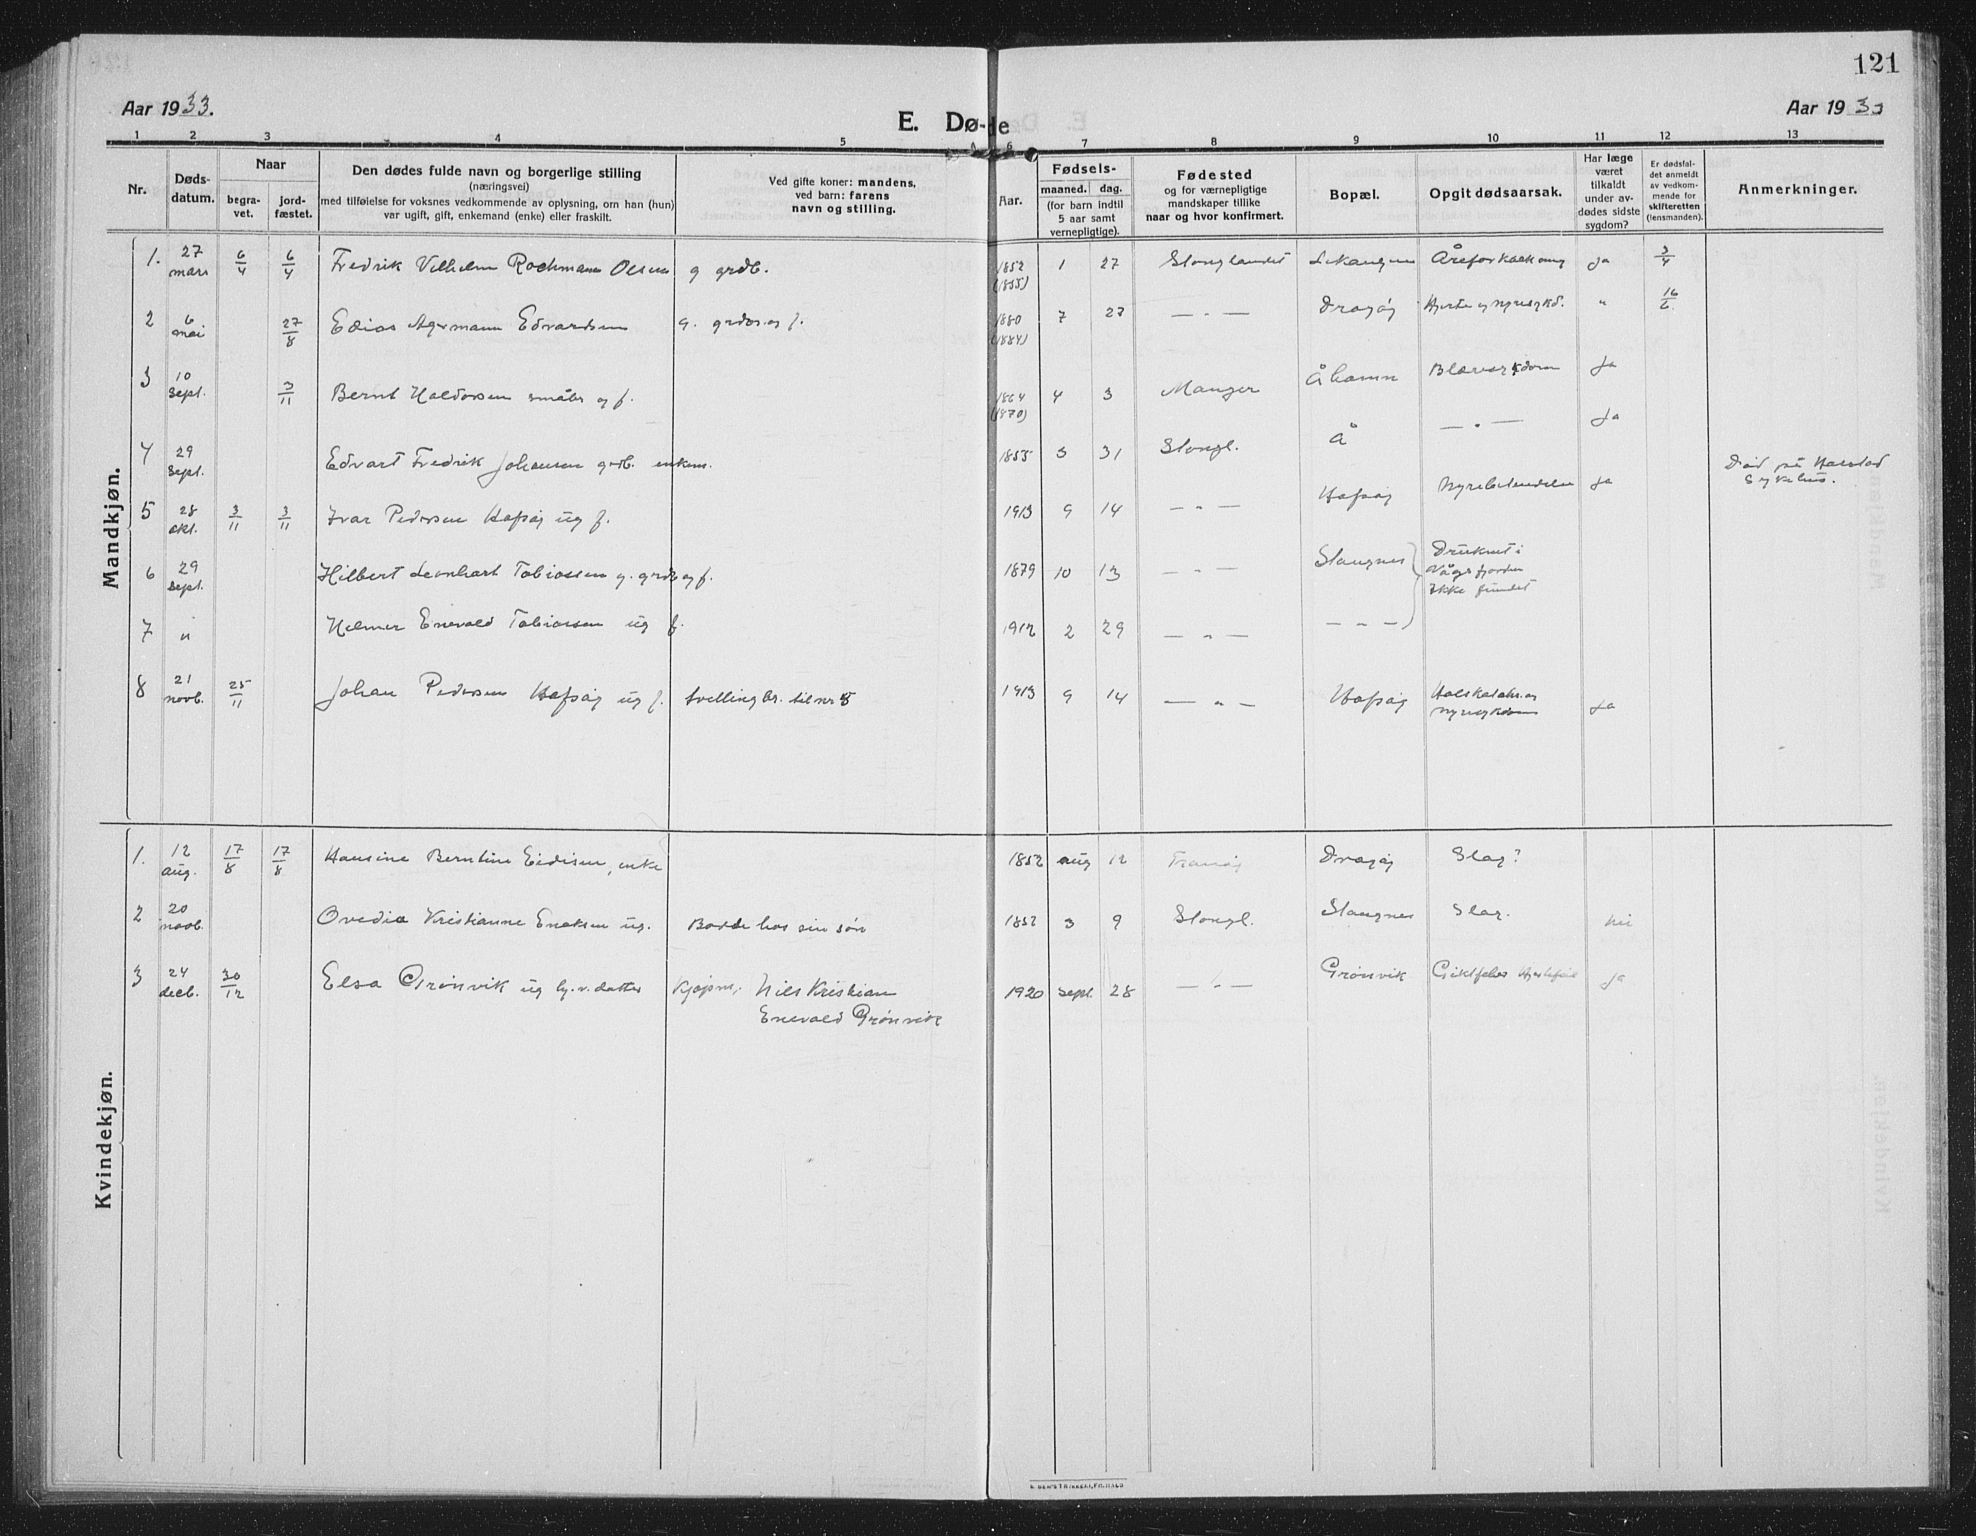 121
Aar 1933.
E. Dø-de
Aar 193
1 2 3 4 5 6 7 8 9 10 11 12 13
Nr.
Døds-
datum.
Naar
begra-
vet.
jord-
fæstet.
Den dødes fulde navn og borgerlige stilling
(næringsvei)
med tilføielse for voksnes vedkommende av oplysning, om han (hun)
var ugift, gift, enkemand (enke) eller fraskilt.
Ved gifte koner: mandens,
ved barn: farens
navn og stilling.
Aar.
Fødsels-
maaned. dag.
(for barn indtil
5 aar samt
vernepligtige).
Fødested
og for værnepligtige
mandskaper tillike
naar og hvor konfirmert.
Bopæl.
Opgit dødsaarsak.
Har læge
været
tilkaldt
under av-
dødes sidste
sygdom?
Er dødsfal-
det anmeldt
av vedkom-
mende for
skifteretten
(lensmanden).
Anmerkninger.
Mandkjøn.
1. 27 mars 6/4 6/4 Fredrik Vilhelm Rochmann Olsen g grdb. 1852 (1855) 1 27 Stonglandet Åreforkalkning Ja 3/4
2 6 mai 27/8 Edias Agermann Edvardsen g. grdbr. og f. 1880 (1884) 7 27 — " — Dragøy Hjerte og nyresykd. " 16/6
3 10 sept. 3/11 Bernt Haldorsen småbr og f. 1864 (1870) 4 3 Manger Åhamn Blæresykdom Ja
4 29 sept. Edvart Fredrik Johansen grdb. enkem. 1855 3 31 Stongl. Å — " — Ja
Død på Harstad
Sykehus.
5 28 okt. 3/11 3/11 Ivar Pedersen Hofsøy ug f. 1913 9 14 — " — Hofsøy Nyrebetendelse Ja
6 29 sept. Hilbert Leonhart Tobiassen g. grdb og f. 1879 10 13 — " — Slangnes Druknet i
Vågsfjorden
Ikke fundet
7 " Helmer Enevald Tobiassen ug f. 1912 2 29 — " — — " —
8 21 novb. 25/11 Johan Pedersen Hofsøy ug f. tvillingbr. til nr 5 1913 9 14 — " — Hofsøy Halskatahr og
nyresykdom Ja
Kvindekjøn.
1. 12 aug. 17/8 17/8 Hansine Berntine Eidisen, enke 1852 aug 12 Tranøy Dragøy Slag?
2 20 novb. Ovedia Kristianne Enoksen ug. Bodde hos sin søn 1852 3 9 Stongl. Slangnes Slag. nei
3 24 decb. 30/12 Elsa Grønvik ug hj.v. datter Kjøpm. Nils Kristian
Enevald Grønvik
1920 sept. 28 — " — Grønvik Giktfeber Hjertefeil Ja